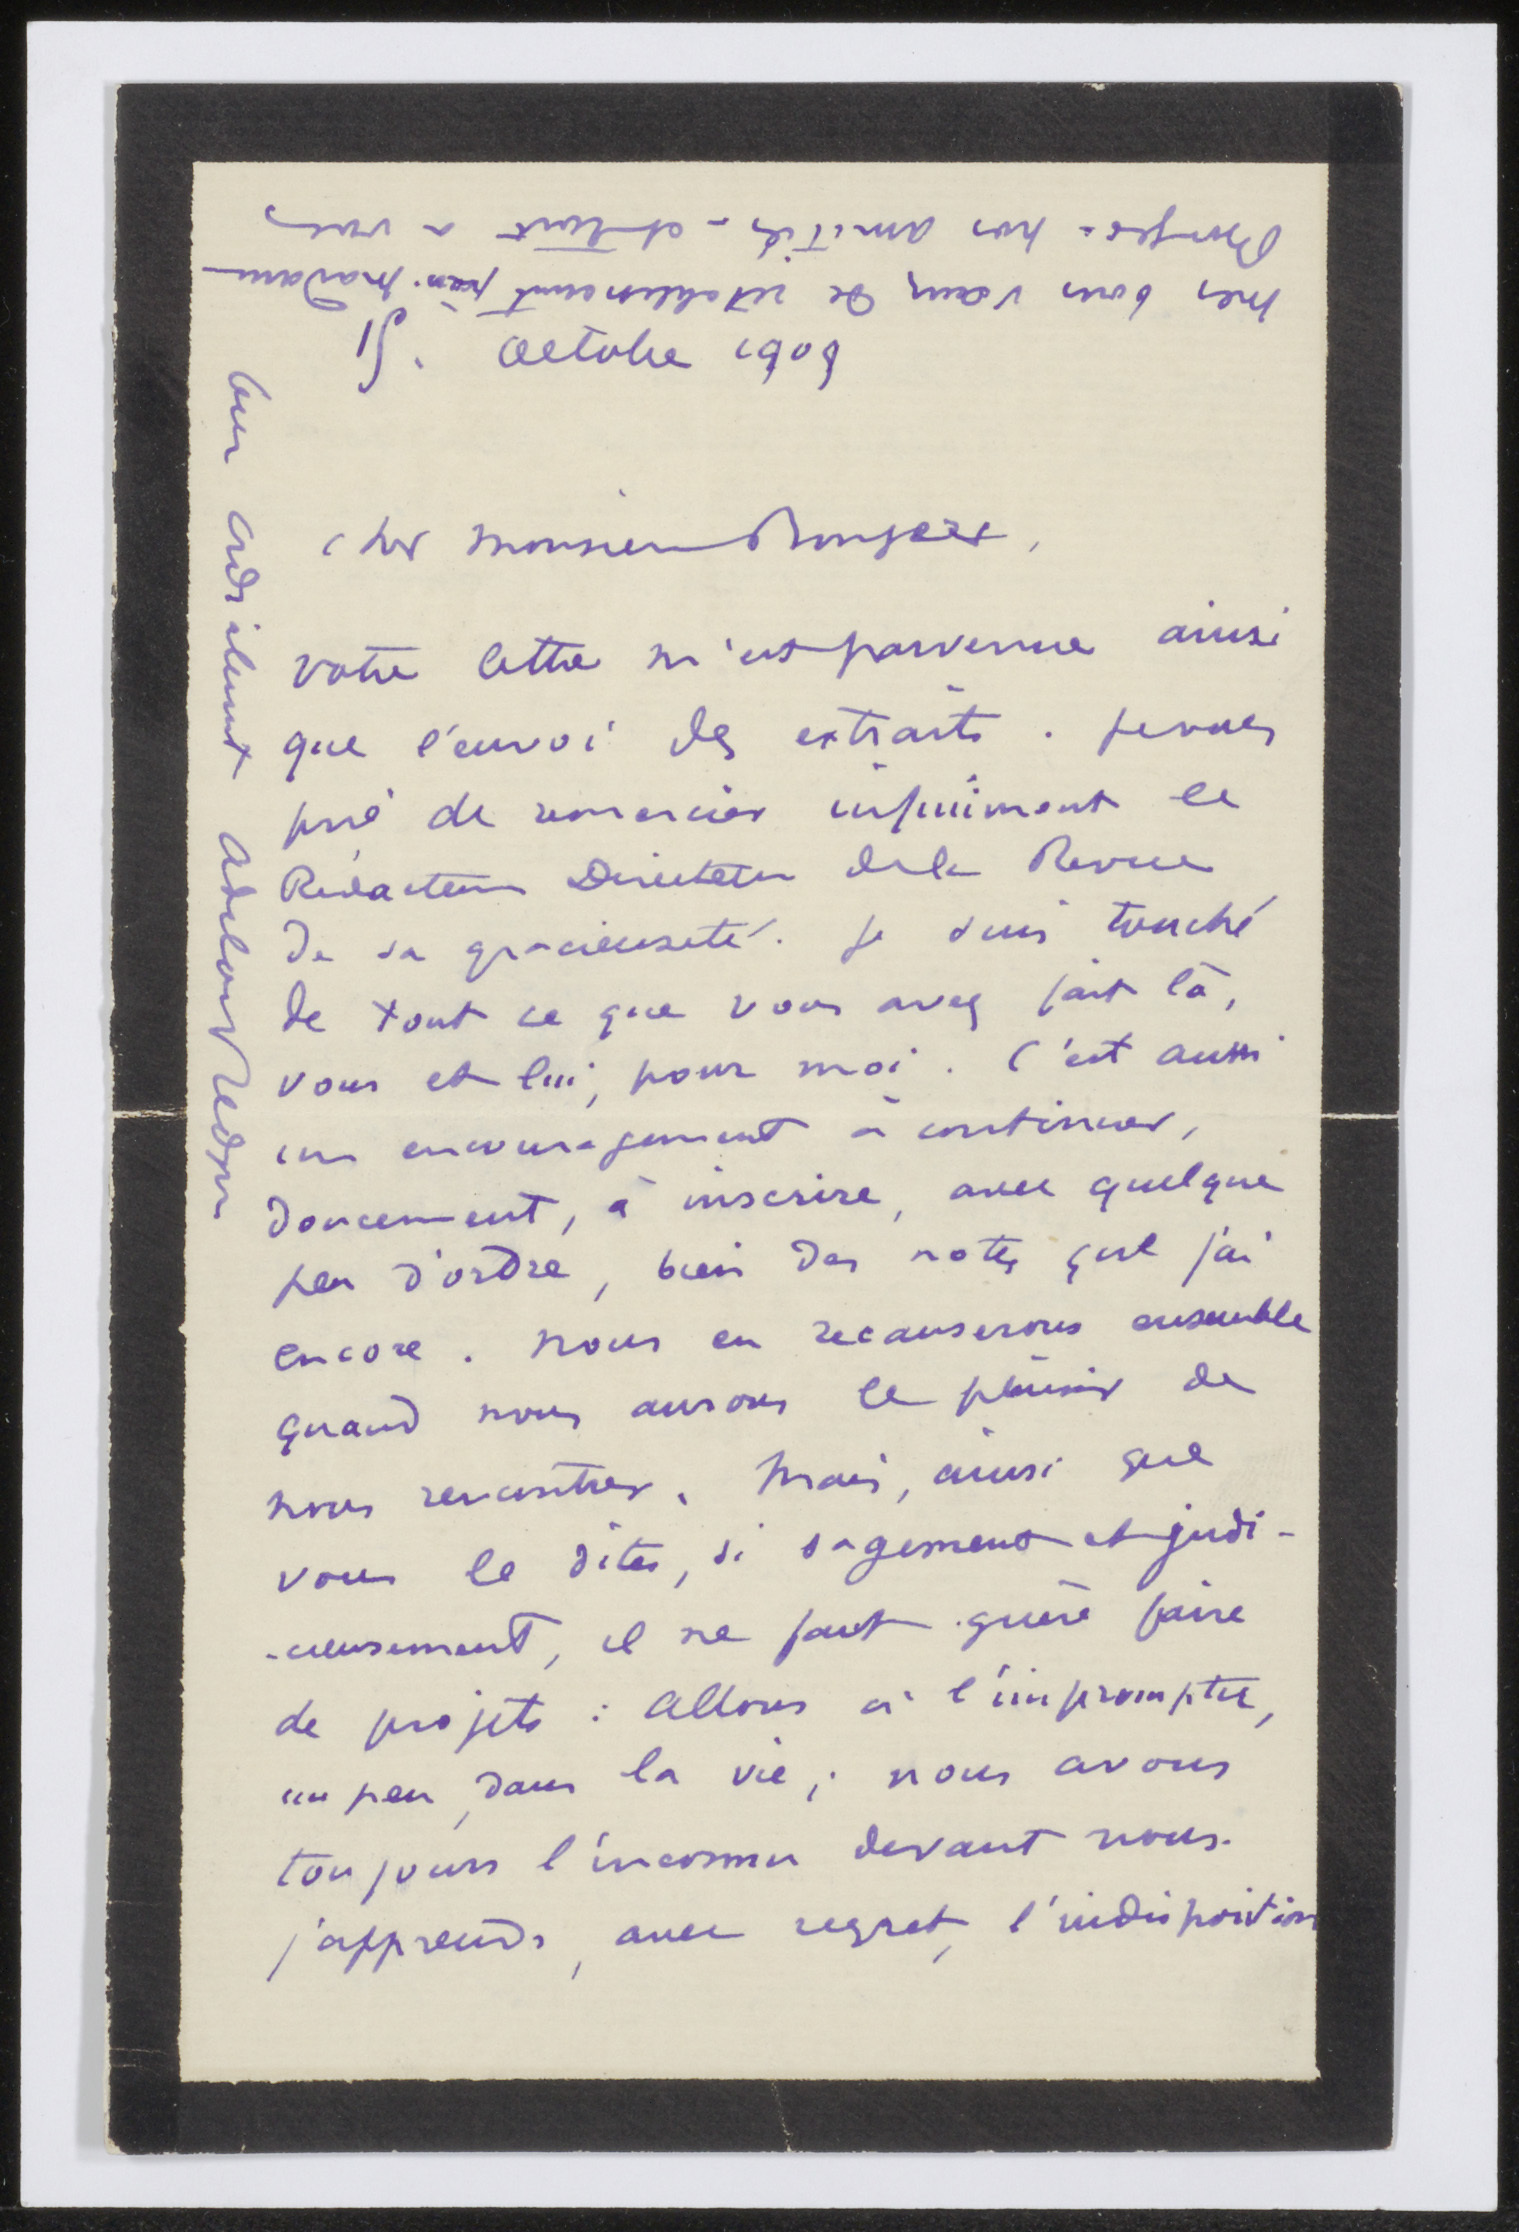 15. octobre 1909
cher monsieur Bonger,
votre lettre m'est parvenue ainsi
que l'envoi des extraits. je vous
prie de remercier infiniment le
Rédacteur Directeur de la Revue
de sa gracieuseté. je suis touché
de tout ce que vous avez fait là,
vous et lui, pour moi. C'est aussi
un encouragement à continuer,
doucement, à inscrire, avec quelque
peu d'ordre, bien des notes que j'ai
encore. nous en recauserons ensemble
quand nous aurons le plaisir de
nous rencontrer. Mais, ainsi que
vous le dites, si sagement et judi-
-cieusement, il ne faut guère faire
de projets : allons à l'impromptu,
un peu, dans la vie ; nous avons
toujours l'inconnu devant nous.
j'apprends, avec regret, l'indisposition
mes bons vœux de rétablissement pour madame
Bonger. nos amitiés - et tout à vous
bien cordialement Odilon Redon